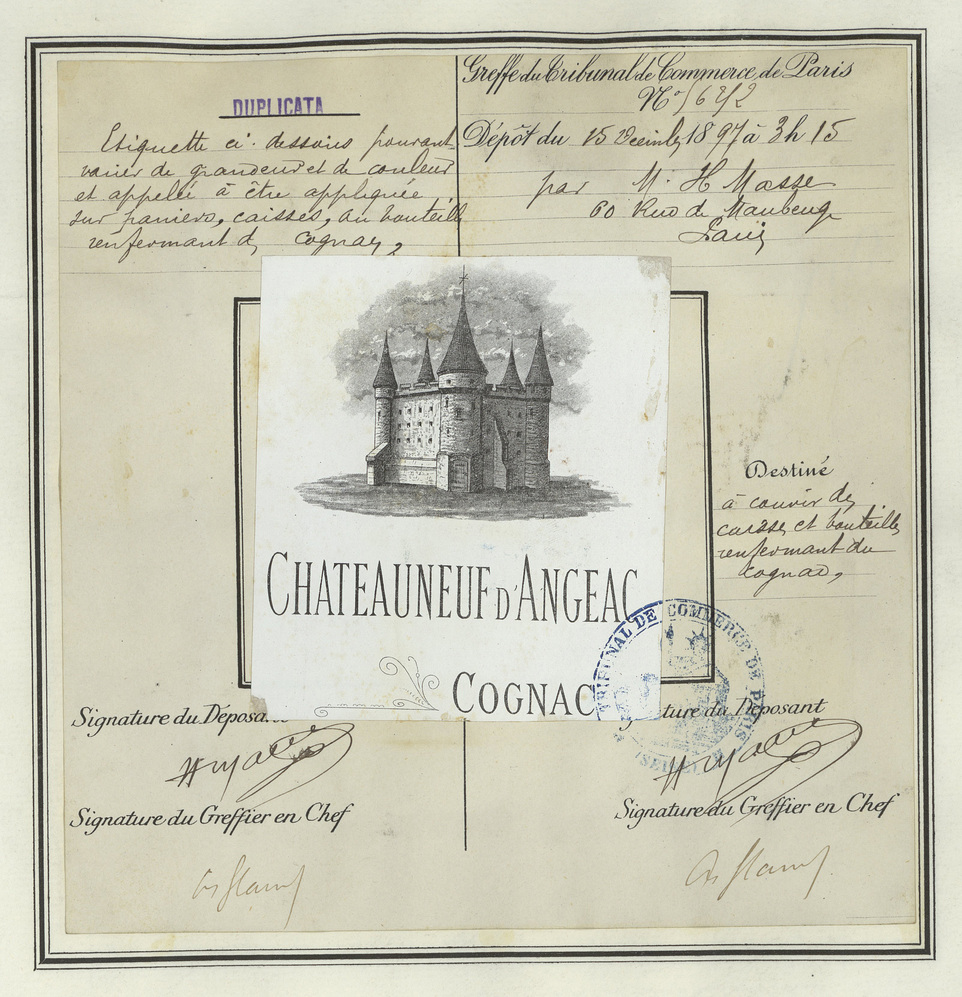 DUPLICATA
Etiquette ci-dessous pouvant
varier de grandeur et de couleur
et appelée à être appliquée
sur paniers, caisses, ou bouteilles
renfermant du cognac,
Greffe du Tribunal de Commerce de Paris
No
Dépôt du 15 Décembre 1897 à 3h 15
par M. H Masse
60 Rue de Maubeuge
Paris
CHATEAUNEUF D'ANGEAC
COGNAC
Destiné
à couvrir des
caisses et bouteilles
renfermant du
cognac,
TRIBUNAL DE COMMERCE DE PARIS
SEINE
Signature du Déposant
Signature du Déposant
Signature du Greffier en Chef
Signature du Greffier en Chef